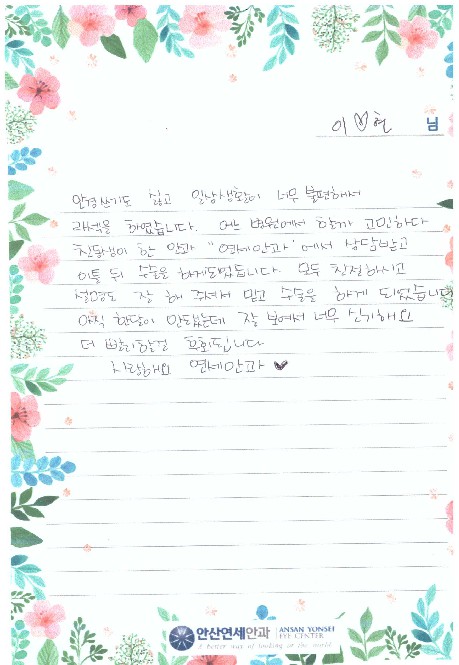 이♡현 님
안경쓰기도 싫고 일상생활이 너무 불편해서
라섹을 하였습니다. 어느 병원에서 할까 고민하다
친동생이 한 안과 "연세안과"에서 상담받고
이틀 뒤 수술을 하게되었습니다. 모두 친절하시고
설명도 잘 해 주셔서 믿고 수술을 하게 되었습니다
아직 한달이 안됐는데 잘 보여서 너무 신기해요
더 빨리할걸 후회됩니다
사랑해요 연세안과 ♥
안산연세안과 ANSAN YONSEI EYE CENTER
A better way of looking at the world